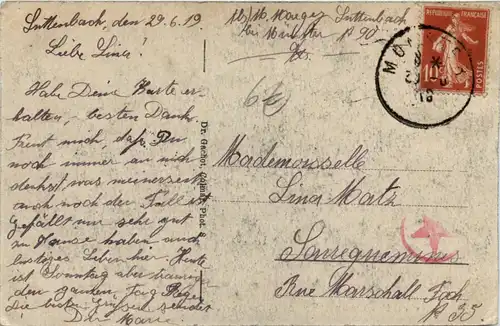 Suttenbach, den 29.6.19
Liebe Lina!
Habe Deine Karte er-
halten, - besten Dank.
Freut mich, daß Du
noch immer an mich
denkst, was meinerseits
auch noch der Fall ist
Gefällt uns sehr gut
zu Hause haben auch
lustiges Leben hier. Heute
ist Sonntag aber
den ganzen Tag Regen
Die besten Grüße sendet
Dir Marie
Suttenbach
bei Munster N 90
Dr. Gachot, Colmar Phot.
6€
REPUBLIQUE FRANÇAISE
10c
POSTES
Mademoiselle
Lina Matz
Sarreguemines
Rue Marschall Foch
N 35